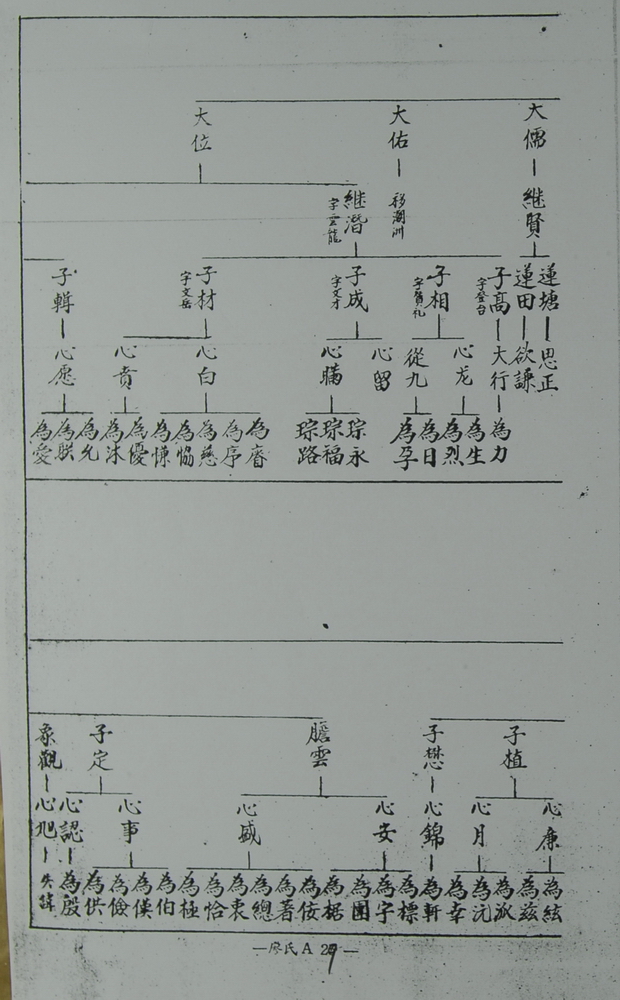 大儒
大佑
大位
継賢
移潮州
継潛
字雲龍
蓮塘
蓮田
子高
字登台
子相
字賛礼
子成
字文才
子材
字文岳
子輯
思正
欲謙
大行
心龙
從九
心留
心瞒
心白
心賁
心愿
為力
為生
為烈
為日
為孕
琮永
琮福
琮路
為睿
為序
為慈
為恊
為悚
為優
為沐
為允
為朕
為愛
子植
子懋
騰雲
子定
象觀
心廉
心月
心錦
心安
心盛
心事
心認
心旭
為紘
為茲
為派
為沅
為幸
為軒
為標
為字
為團
為椐
為侒
為著
為總
為衷
為恰
為極
為伯
為僕
為儉
為供
為殷
失諱
—廖氏A 29—